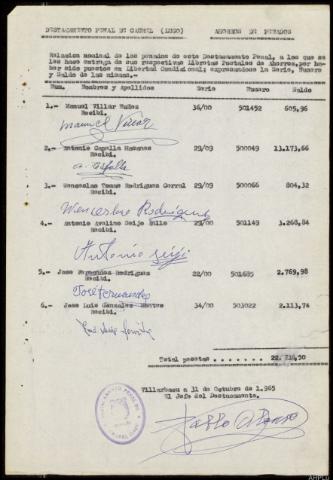 DESTACAMENTO PENAL DE (LUGO) AHORROS DE PENADOS
Relacion nominal de los penados de este Destacamento Penal, a los que se
les hace entrega de sus respectivas Libretas Postales de Ahorros, por ha-
ber sido puestos en Libertad Condicional; expresandose la Serie, Numero
y Saldo de las mismas.-
Num. Nombres y Apellidos Serie Numero Saldo
1.- Manuel Villar Nuñez 36/00 501452 605,96
Recibi.
Manuel Villar
2.- Antonio Capella 29/09 500049 13.173,66
Recibi.
A. Capella
3.- Wenceslao Tomas Rodriguez Corral 29/09 500066 804,32
Recibi.
Wenceslao Rodriguez
4.- Antonio Avelino Seijo 29/00 501149 3.268,84
Recibi.
Antonio Seijo
5.- Jose Fernandez Rodriguez 22/00 501685 2.769,98
Recibi.
Jose Fernandez
6.- Jose Luis Gonzalez 34/00 503022 2.113,74
Recibi.
Total pesetas
a 31 de Octubre de 1.965
El Jefe del Destacamento.
Pablo Alonso